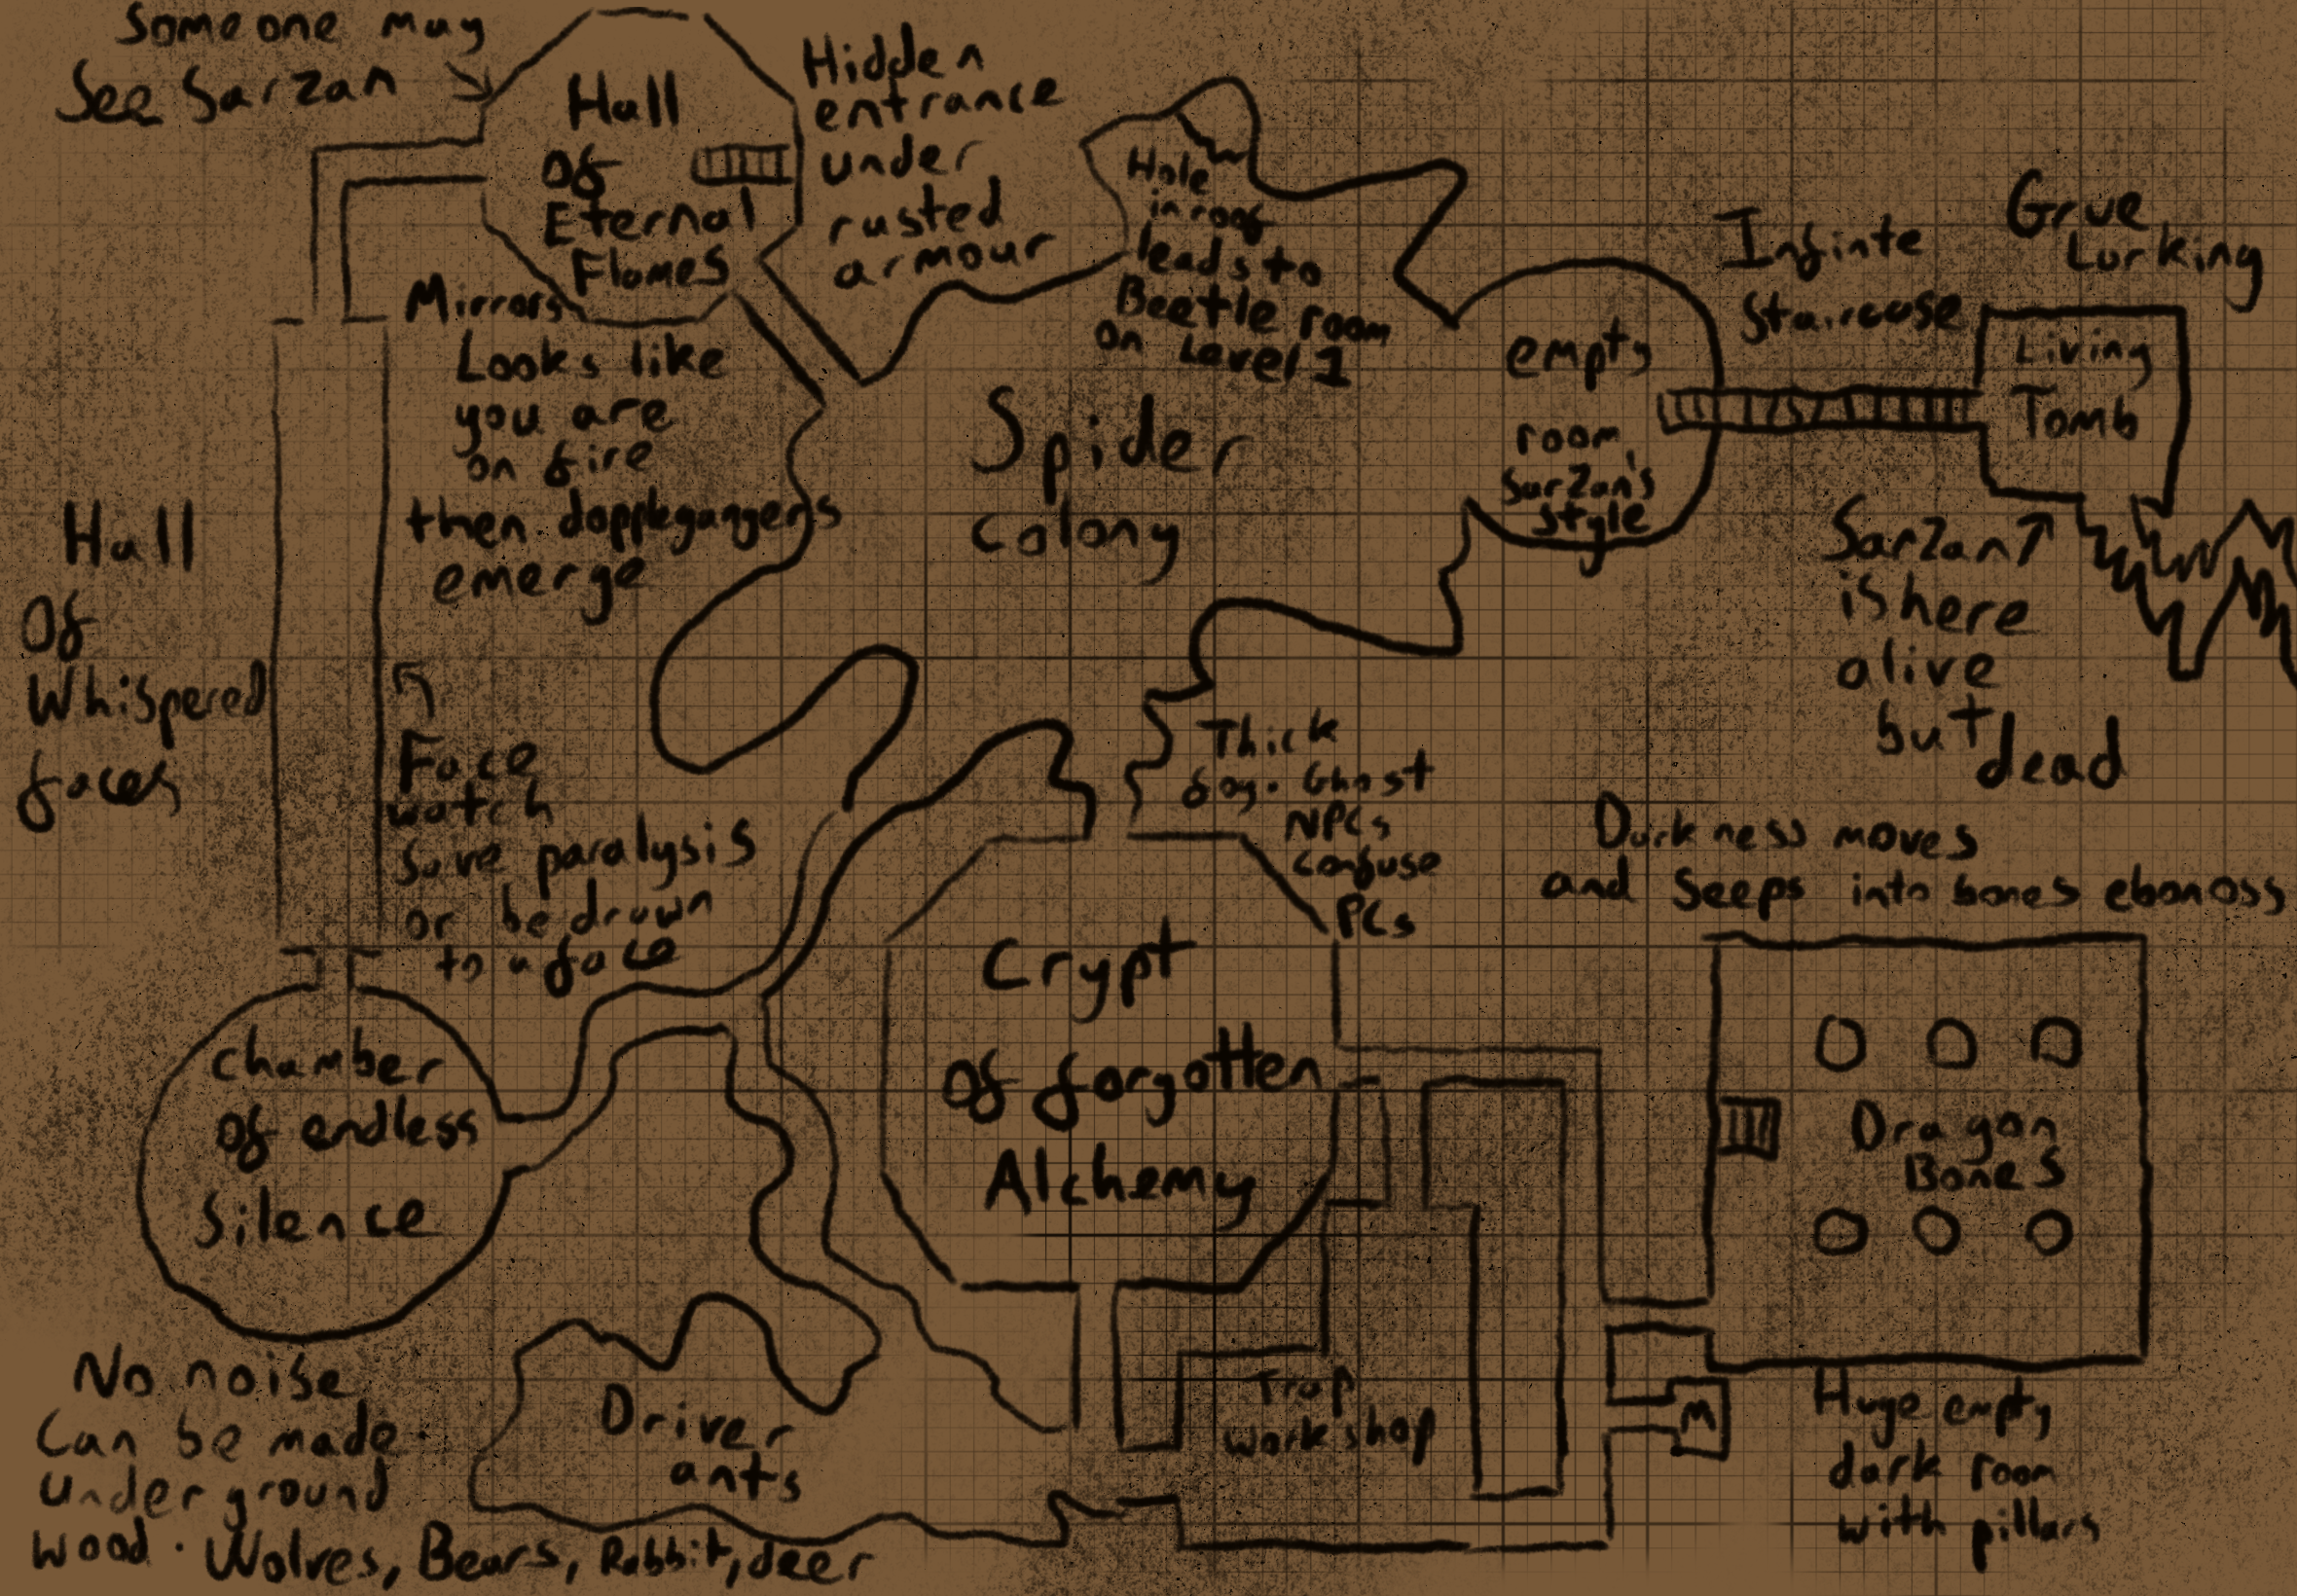 Someone may
See Sarzan
Hall
Of
Eternal
Flames
Hidden
entrance
under
rusted
armour
Hole
in roof
leads to
Beetle room
on Level 1
Infinte
Staircase
Grue
Lurking
Living
Tomb
empty
room,
Sarzan's
style
Mirrors
Looks like
you are
on fire
then dopplegangers
emerge
Spider
Colony
Sarzan
is here
alive
but dead
Hall
Of
Whispered
faces
Face
watch
Save paralysis
or be drawn
to a face
Thick
fog. Ghost
NPCs
confuse
PCs
Darkness moves
and seeps into bones ebonoss
Crypt
Of forgotten
Alchemy
chamber
of endless
Silence
Dragon
Bones
No noise
Can be made
underground
wood. Wolves, Bears, Rabbit, deer
Driver
ants
Trap
workshop
M
Huge empty
dark room
with pillars